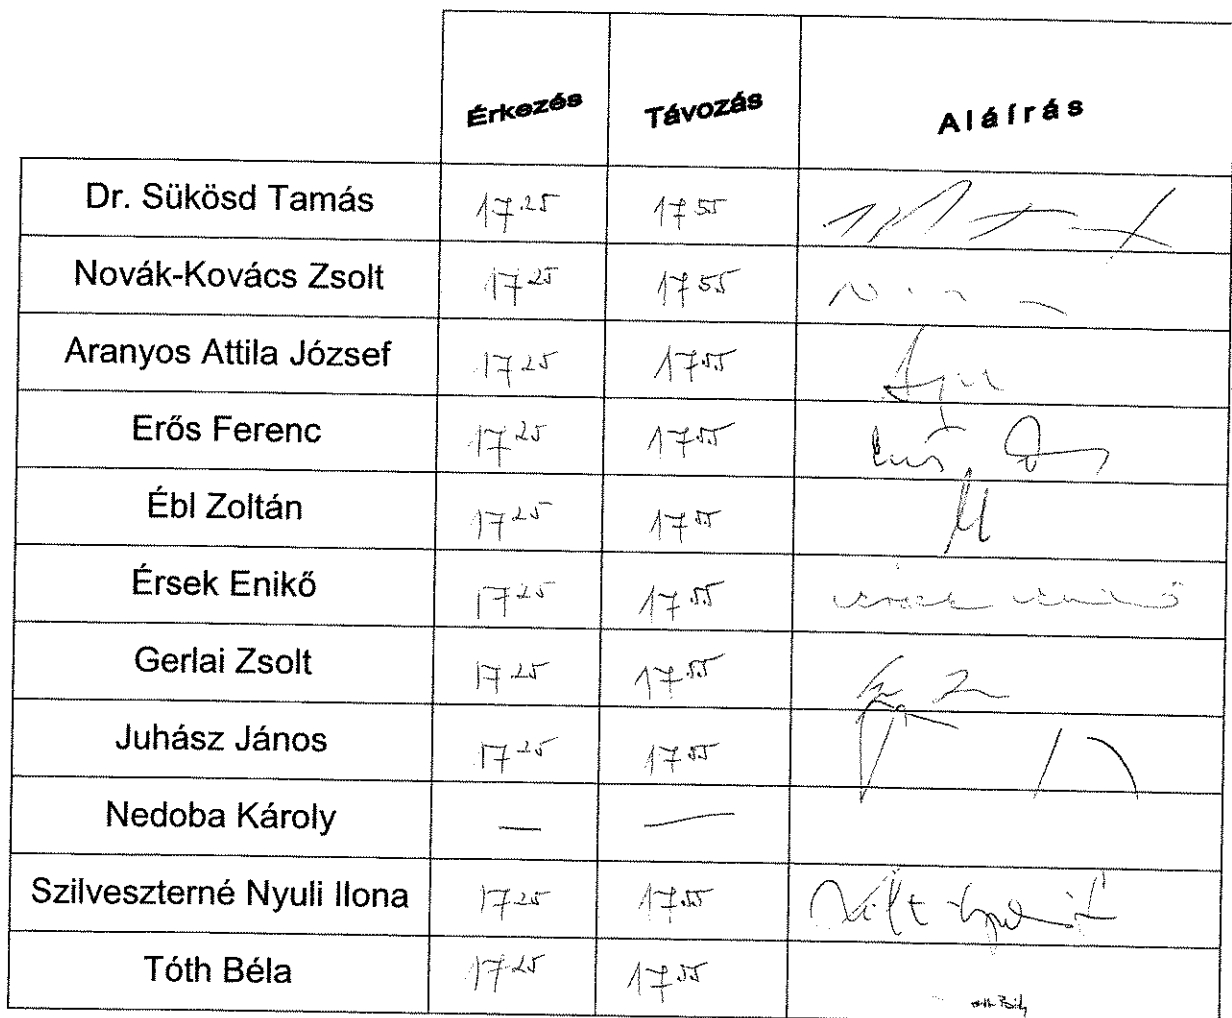 Érkezés Távozás Aláírás
Dr. Sükösd Tamás 17 25 17 55
Novák-Kovács Zsolt 17 25 17 55
Aranyos Attila József 17 25 17 55
Erős Ferenc 17 25 17 55
Ébl Zoltán 17 25 17 55
Érsek Enikő 17 25 17 55
Gerlai Zsolt 17 25 17 55
Juhász János 17 25 17 55
Nedoba Károly — —
Szilveszterné Nyuli Ilona 17 25 17 55
Tóth Béla 17 25 17 55